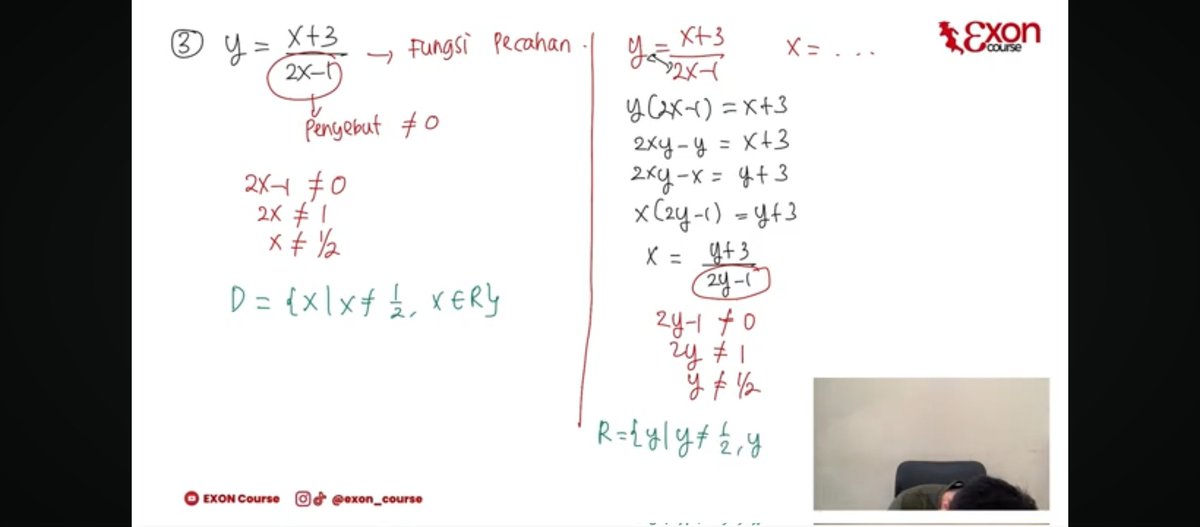 ③ y = x+3 / 2x-1 → Fungsi Pecahan.
Penyebut ≠ 0
2x-1 ≠ 0
2x ≠ 1
x ≠ 1/2
D = {x | x ≠ 1/2, x ∈ R}
y = x+3 / 2x-1 x = ...
y(2x-1) = x+3
2xy - y = x+3
2xy - x = y+3
x(2y-1) = y+3
x = y+3 / 2y-1
2y-1 ≠ 0
2y ≠ 1
y ≠ 1/2
R = {y | y ≠ 1/2, y
Exon
course
EXON Course @exon_course